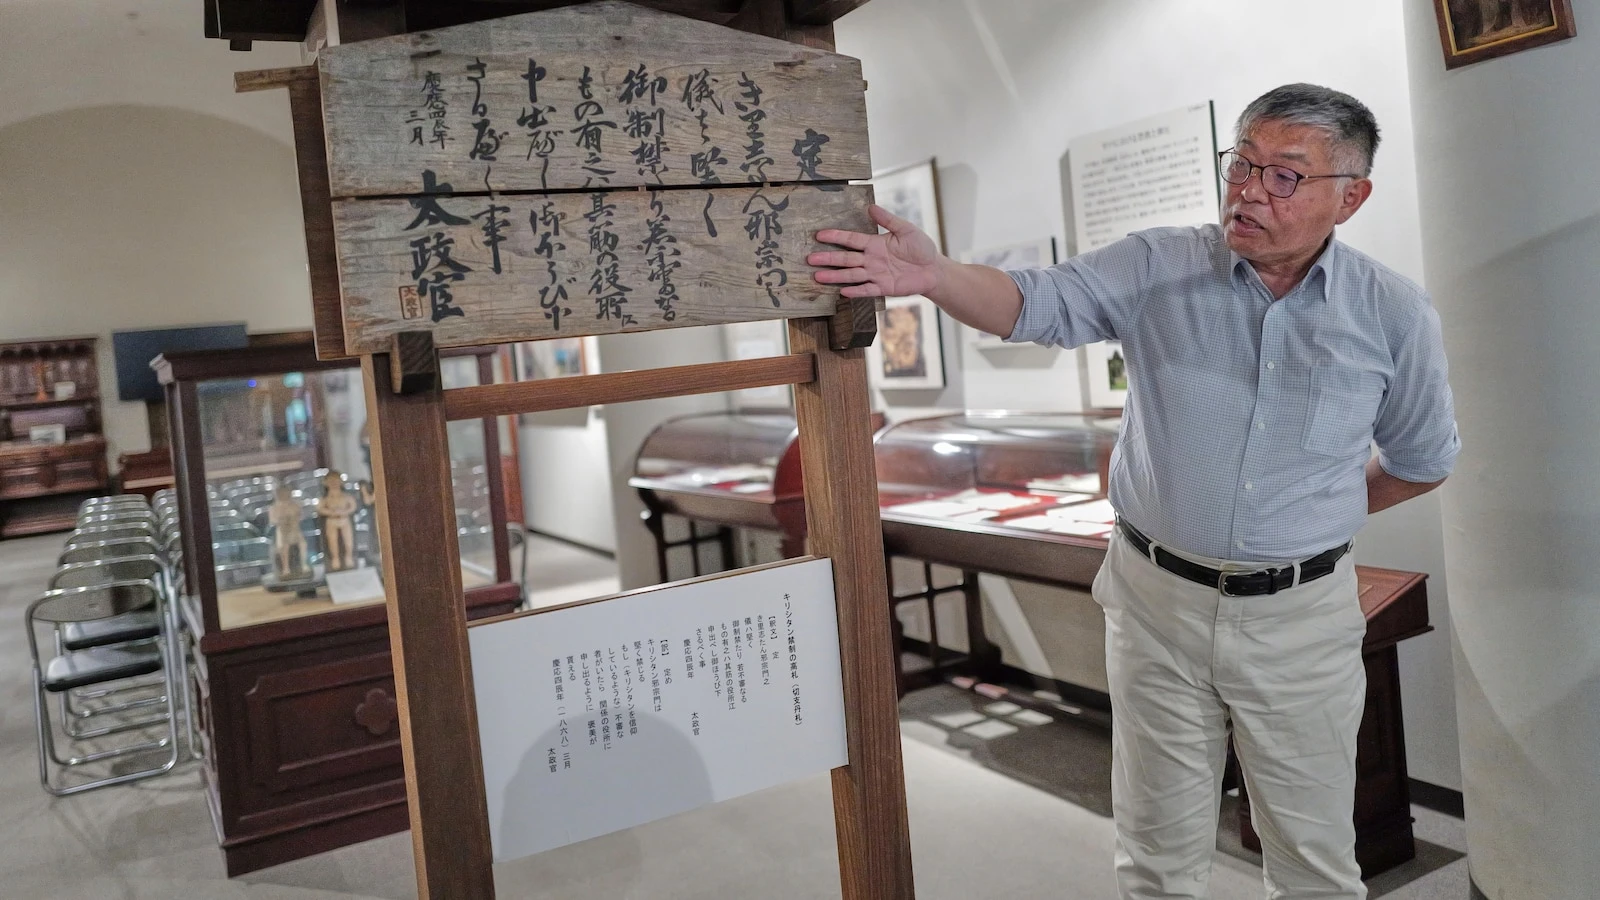 定
きり志たん邪宗門之
儀ハ堅く
御制禁たり若不審なる
もの有之ハ其筋の役所江
申出べし御ほうび下
さるべく事
慶應四辰年
三月
太政官
太政官
キリシタン禁制の高札(切支丹札)
【釈文】 定
き里志たん邪宗門之
儀ハ堅く
御制禁たり 若不審なる
もの有之ハ其筋の役所江
申出べし御ほうび下
さるべく事
慶応四辰年 太政官
【訳】 定め
キリシタン邪宗門は
堅く禁じる
もし(キリシタンを信仰
しているような)不審な
者がいたら 関係の役所に
申し出るように 褒美が
貰える
慶応四辰年(一八六八)三月
太政官